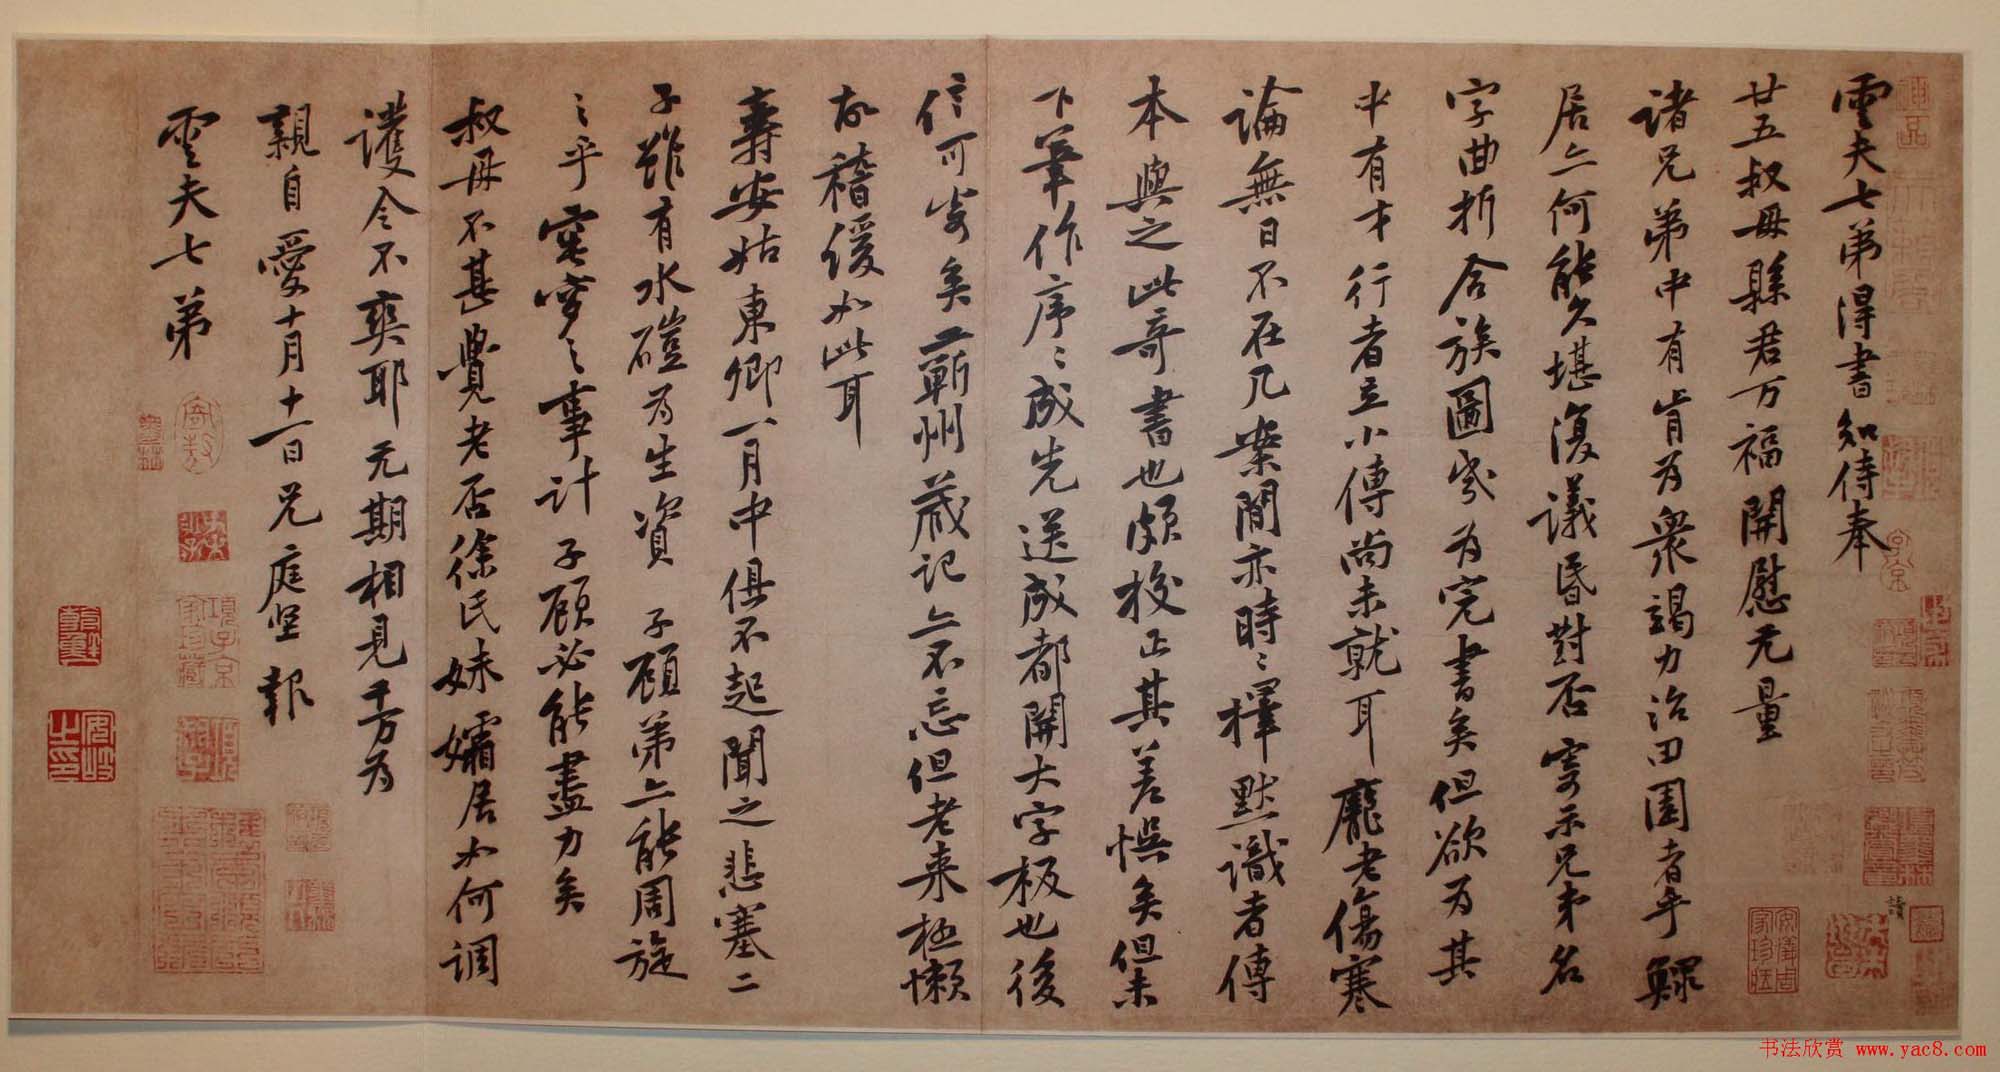 雲夫七弟得書知侍奉
廿五叔母縣君万福開慰无量
诸兄弟中有肯为衆竭力治田園者乎鰥
居亠何能久堪復議昏對否寄示兄弟名
字曲折合族圖岁为完書矣但欲为其
中有才行者立小傳尚未就耳龐老傷寒
論無日不在几案間亦時〻擇默識者傳
本與之此奇書也頗校正其差悞矣但未
下筆作序〻成先送成都開大字板也後
信可寄矣王蕲州葴记亠不忘但老来極懒
故稽缓如此耳
壽安姑東卿一月中俱不起聞之悲塞二
子雖有水磑为生資子顾弟亠能周旋
之乎窀穸之事計子顾必能盡力矣
叔母不甚覺老否徐氏妹孀居如何调
護令不爽耶元期相見千万为
親自愛十月十一日兄庭坚報
雲夫七弟
項子京
家珍藏
安儀周
家珍藏
安岐
之印
書法欣赏 www.yac8.com